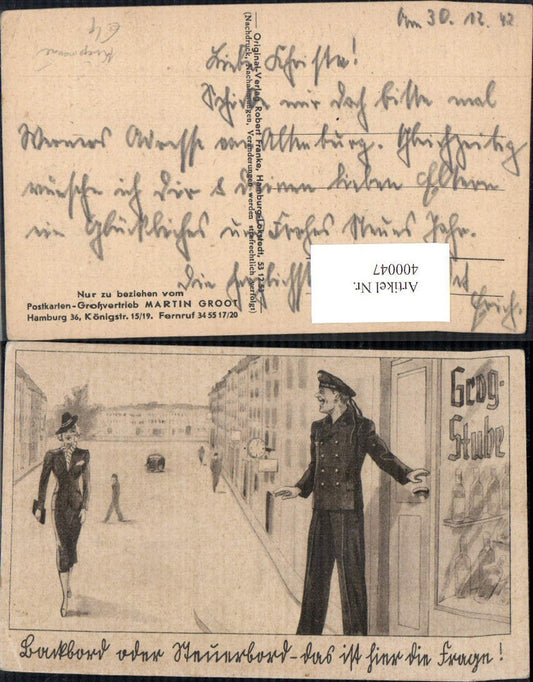 Am 30. 12. 42
Liebe Christe!
Schicke mir doch bitte mal
Werners Adresse von Altenburg. Gleichzeitig
wünsche ich Dir & deinen lieben Eltern
ein Glückliches und Frohes Neues Jahr.
Die herzlichst
Erich.
Original-Verlag Robert Franke, Hamburg-Lokstedt, 53 12 54
(Nachdruck, Nachahmungen, Veränderungen werden strafrechtlich verfolgt)
Nur zu beziehen vom
Postkarten-Großvertrieb MARTIN GROOT
Hamburg 36, Königstr. 15/19. Fernruf 34 55 17/20
Artikel Nr.
400047
Grog-
Stube
Backbord oder Steuerbord - das ist hier die Frage!